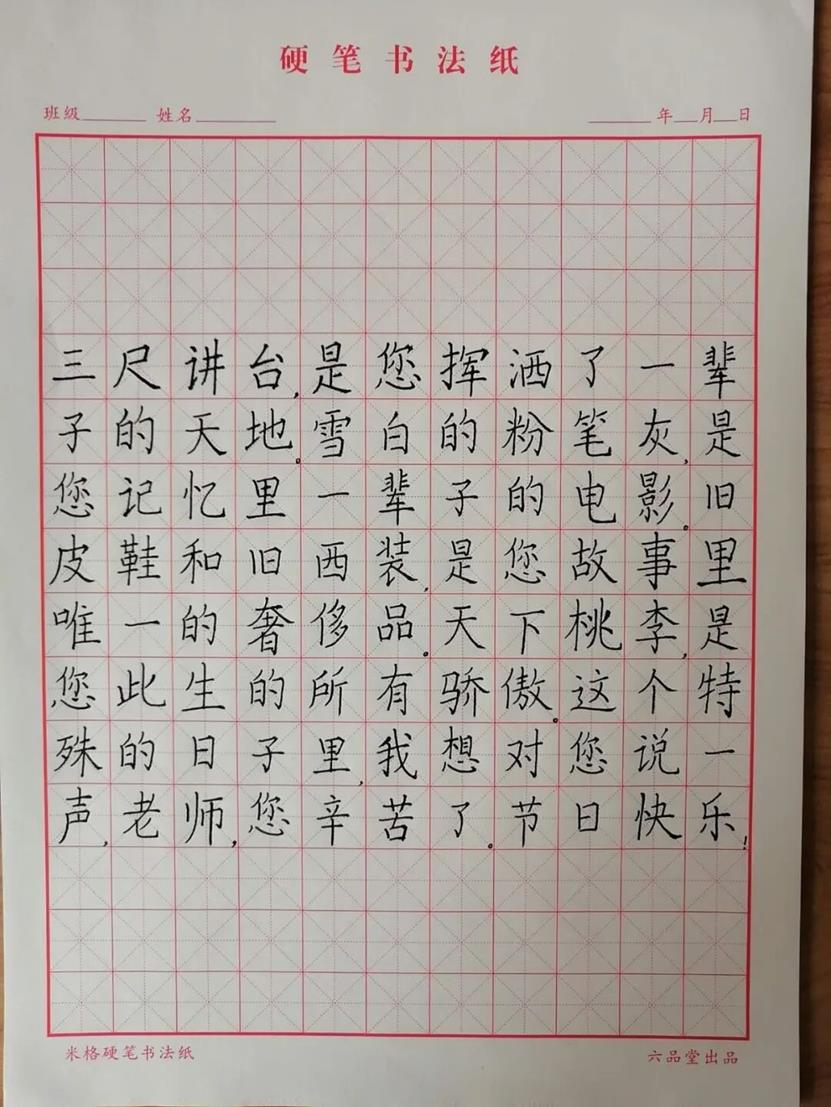 硬笔书法纸
班级 姓名 年 月 日
三尺讲台,是您挥洒了一辈
子的天地。雪白的粉笔灰,是
您记忆里一辈子的电影。旧
皮鞋和旧西装,是您故事里
唯一的奢侈品。天下桃李,是
您此生的所有骄傲。这个特
殊的日子里,我想对您说一
声,老师,您辛苦了。节日快乐!
米格硬笔书法纸 六品堂出品